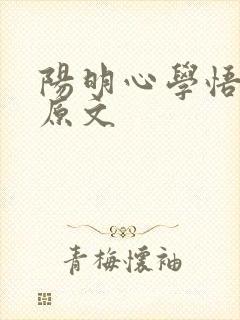 陽明心學悟
原文
青梅懷袖